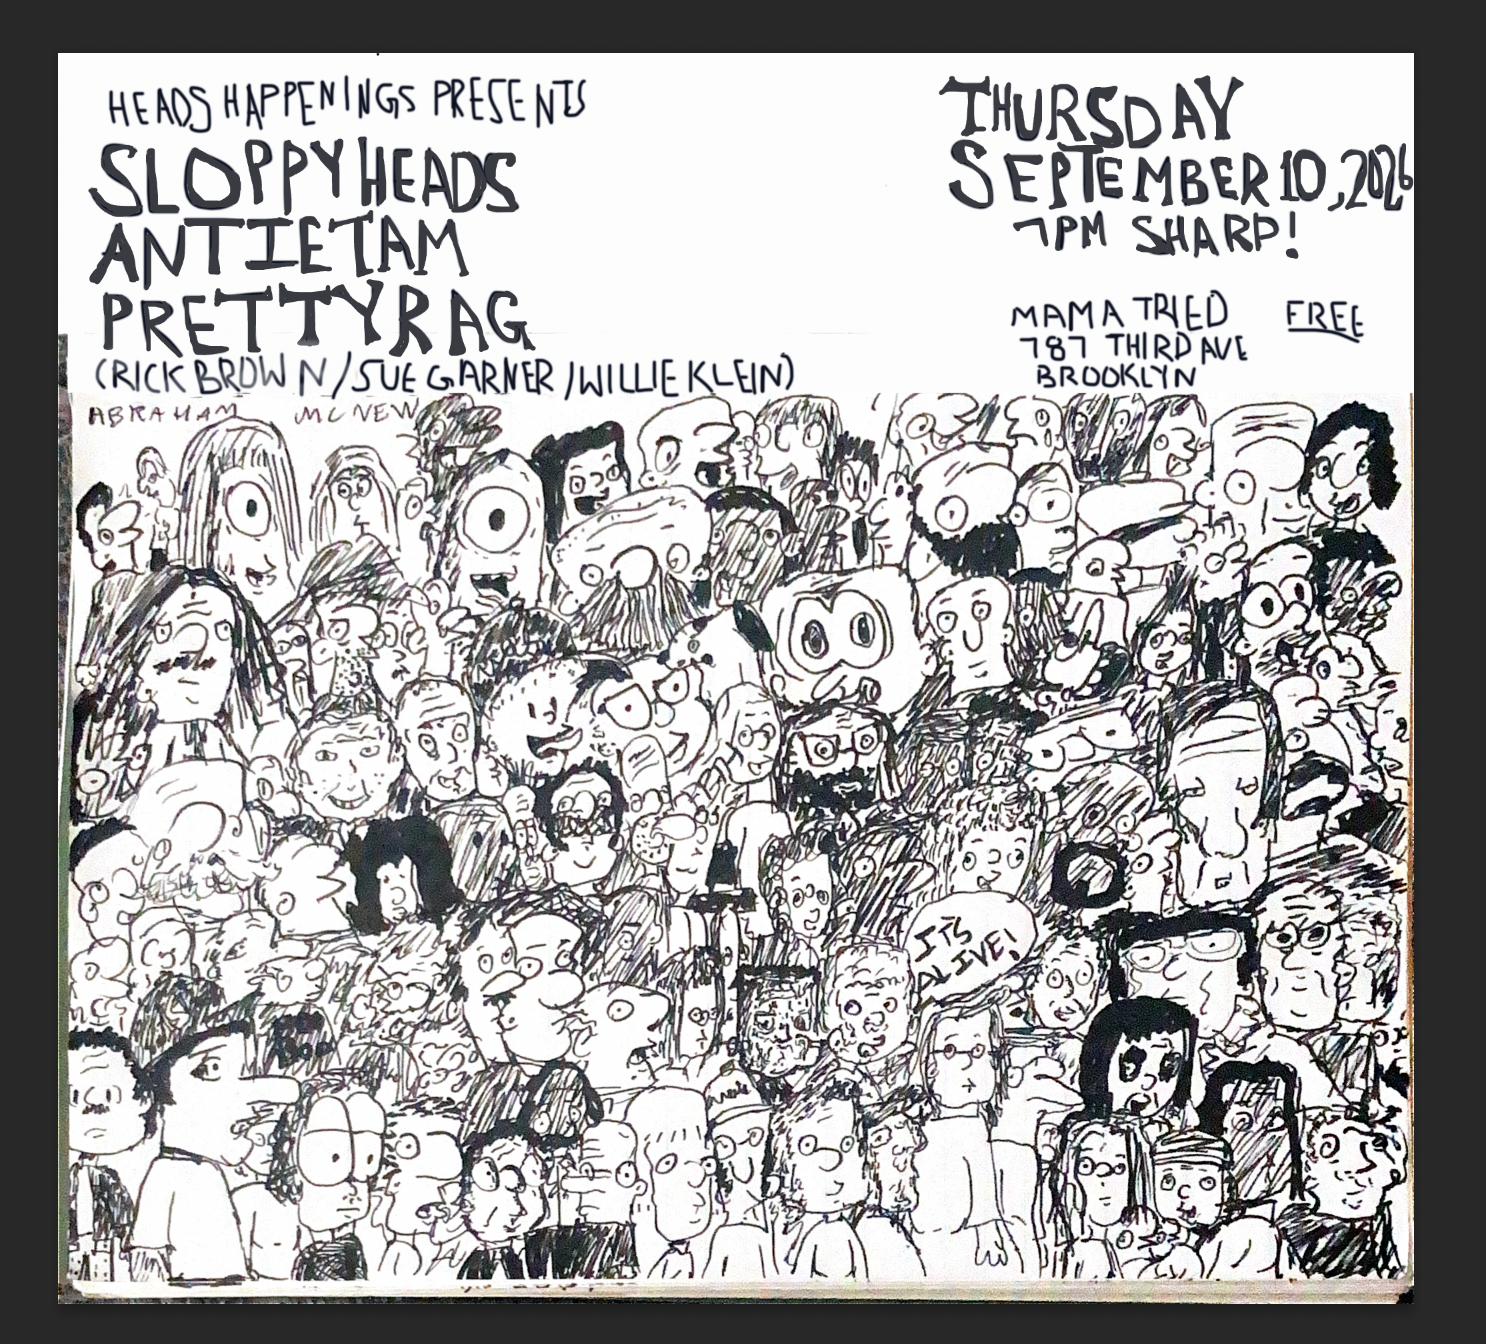 HEADS HAPPENINGS PRESENTS
SLOPPY HEADS
ANTIETAM
PRETTY RAG
(RICK BROWN / SUE GARNER / WILLIE KLEIN)
THURSDAY
SEPTEMBER 10, 2026
7PM SHARP!
MAMA TRIED
787 THIRD AVE
BROOKLYN
FREE
ABRAHAM MCNEW
IT'S
ALIVE!